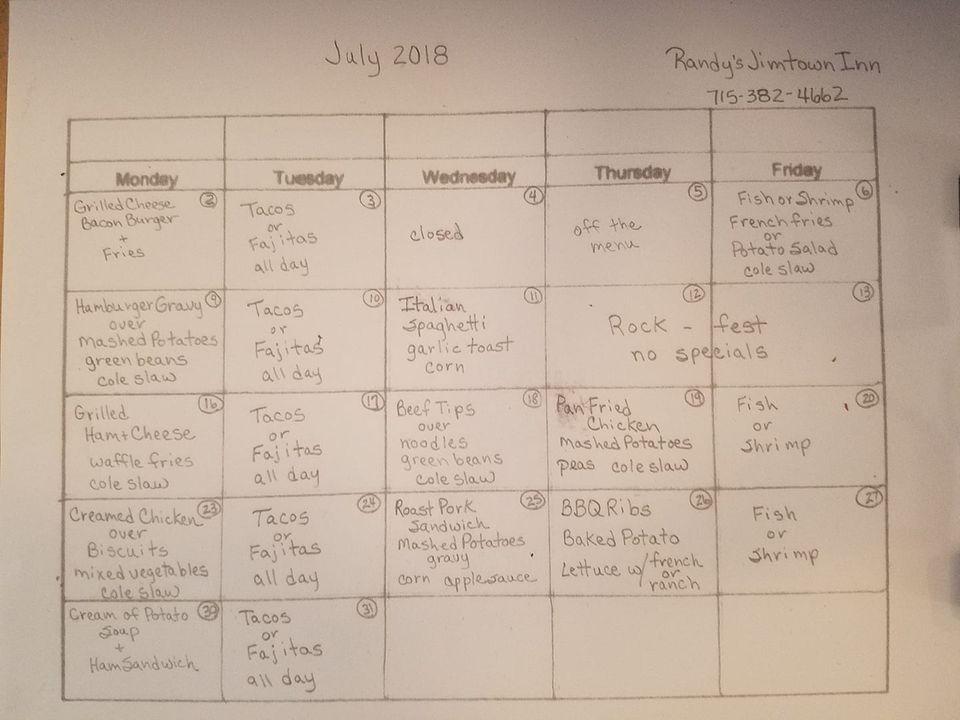 July 2018
Randy's Jimtown Inn
715-382-4662
Monday
Tuesday
Wednesday
Thursday
Friday
2
Grilled Cheese
Bacon Burger
+
Fries
3
Tacos
or
Fajitas
all day
4
closed
5
off the
menu
6
Fish or Shrimp
French fries
or
Potato Salad
cole slaw
9
Hamburger Gravy
over
mashed Potatoes
green beans
cole slaw
10
Tacos
or
Fajitas
all day
11
Italian
Spaghetti
garlic toast
corn
12
13
Rock - fest
no specials
16
Grilled
Ham + Cheese
waffle fries
cole slaw
17
Tacos
or
Fajitas
all day
18
Beef Tips
over
noodles
green beans
cole slaw
19
Pan Fried
Chicken
Mashed Potatoes
peas cole slaw
20
Fish
or
Shrimp
23
Creamed Chicken
over
Biscuits
mixed vegetables
cole slaw
24
Tacos
or
Fajitas
all day
25
Roast Pork
Sandwich
Mashed Potatoes
gravy
corn applesauce
26
BBQ Ribs
Baked Potato
Lettuce w/ french
or
ranch
27
Fish
or
Shrimp
30
Cream of Potato
Soup
+
Ham Sandwich
31
Tacos
or
Fajitas
all day